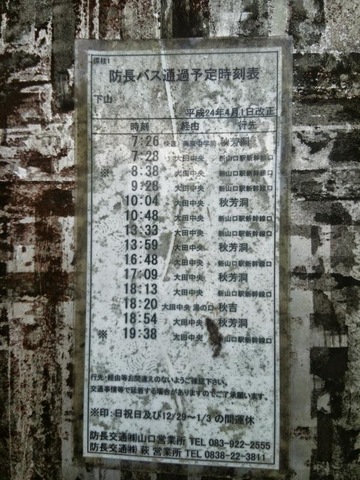 標柱1
防長バス通過予定時刻表
下山
平成24年4月1日改正
時刻 経由 行先
7:26 秋芳洞
7:28 大田中央 新山口駅新幹線口
※ 8:38 大田中央 新山口駅新幹線口
9:28 大田中央 新山口駅新幹線口
10:04 大田中央 秋芳洞
10:48 大田中央 新山口駅新幹線口
13:33 大田中央 新山口駅新幹線口
13:59 大田中央 秋芳洞
16:48 大田中央 新山口駅新幹線口
17:09 大田中央 秋芳洞
18:13 大田中央 新山口駅新幹線口
18:20 大田中央 湯の口 秋吉
18:54 大田中央 秋芳洞
※ 19:38 大田中央 新山口駅新幹線口
行先・経由等お間違えのないようご確認下さい。
交通事情等で延着する場合がありますのでご了承願います。
※印:日祝日及び12/29〜1/3の間運休
防長交通㈱山口営業所 TEL 083-922-2555
防長交通㈱ 萩 営業所 TEL 0838-22-3811